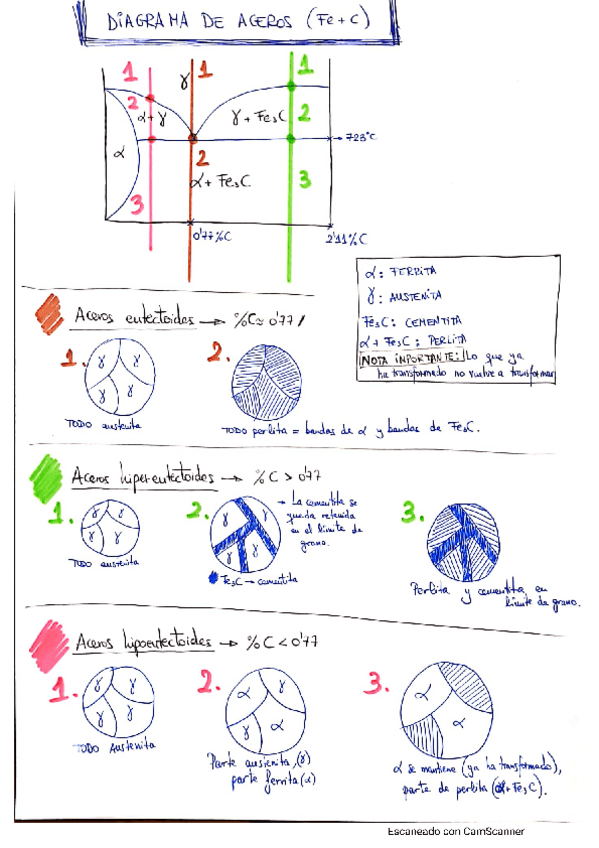 DIAGRAMA DE ACEROS (Fe+C)
1 γ 1 1
2 α+γ γ+Fe₃C 2
→ 723°C
α 2
α+Fe₃C 3
3
0'77%C 2'11%C
α: FERRITA
γ: AUSTENITA
Fe₃C: CEMENTITA
α+Fe₃C: PERLITA
NOTA IMPORTANTE: Lo que ya
ha transformado no vuelve a transformar
Aceros eutectoides → %C≈0'77
1. γ γ γ γ
2.
TODO austenita
TODO perlita = bandas de α y bandas de Fe₃C.
Aceros hipereutectoides → %C>0'77
1. γ γ γ γ
TODO austenita
2. γ γ γ γ
→ La cementita se
queda retenida
en el límite de
grano.
Fe₃C → cementita
3.
Perlita y cementita en
límite de grano.
Aceros hipoeutectoides → %C<0'77
1. γ γ γ γ
TODO Austenita
2. α γ γ α
Parte austenita (γ)
parte ferrita (α)
3. α α
α se mantiene (ya ha transformado),
parte de perlita (α+Fe₃C).
Escaneado con CamScanner